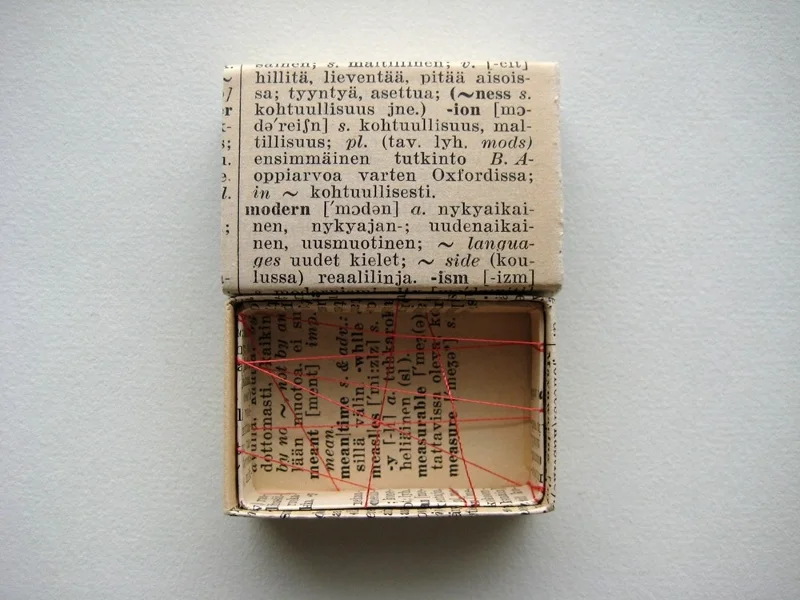 hillitä, lieventää, pitää aisois-
sa; tyyntyä, asettua; (~ness s.
kohtuullisuus jne.) -ion [mɔ-
də′reiʃn] s. kohtuullisuus, mal-
tillisuus; pl. (tav. lyh. mods)
ensimmäinen tutkinto B. A-
oppiarvoa varten Oxfordissa;
in ~ kohtuullisesti.
modern [′mɔdən] a. nykyaikai-
nen, nykyajan-; uudenaikai-
nen, uusmuotinen; ~ langua-
ges uudet kielet; ~ side (kou-
lussa) reaalilinja. -ism [-izm]
dottomasti,
by no ~ not by
lään muotoa, ei
meant [ment] imp.
mean.
mean|time s. & adv.:
sillä välin -while
measles [′mi:zlz] s.
-y [-li] a. tuhkarok
heliäinen (sl).
measurable [′meʒ(ə)
tattavissa oleva,
measure [′meʒə*] s.